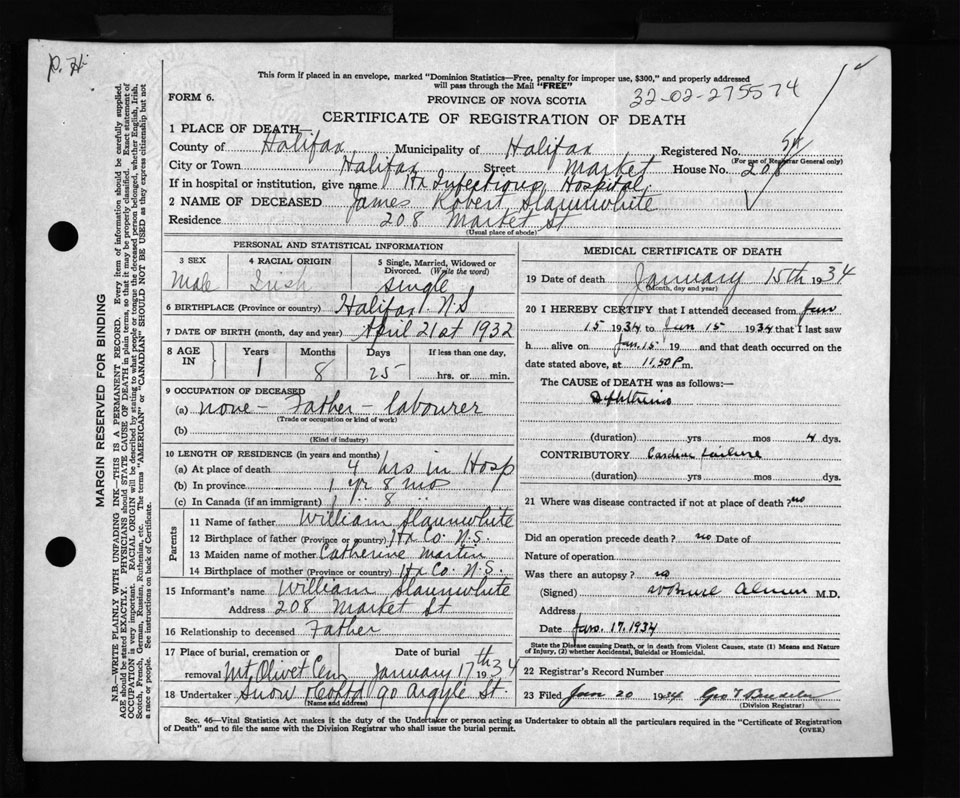 P. H.
This form if placed in an envelope, marked "Dominion Statistics—Free, penalty for improper use, $300," and properly addressed
will pass through the Mail "FREE"
FORM 6.
PROVINCE OF NOVA SCOTIA
32-02-275574
CERTIFICATE OF REGISTRATION OF DEATH
1 PLACE OF DEATH—
County of Halifax Municipality of Halifax Registered No.
(For use of Registrar General only)
City or Town Halifax Street Market House No. 208
If in hospital or institution, give name Hx Infectious Hospital
2 NAME OF DECEASED James Robert Slaunwhite
Residence 208 Market St
(Usual place of abode)
PERSONAL AND STATISTICAL INFORMATION
3 SEX Male
4 RACIAL ORIGIN Irish
5 Single, Married, Widowed or Divorced. (Write the word) Single
6 BIRTHPLACE (Province or country) Halifax N.S
7 DATE OF BIRTH (month, day and year) April 21st 1932
8 AGE IN Years 1 Months 8 Days 25 If less than one day, hrs. or min.
9 OCCUPATION OF DECEASED
(a) none - Father - labourer
(Trade or occupation or kind of work)
(b)
(Kind of industry)
10 LENGTH OF RESIDENCE (in years and months)
(a) At place of death 4 hrs in Hosp
(b) In province 1 yr 8 mos
(c) In Canada (if an immigrant) 1 " 8 "
Parents
11 Name of father William Slaunwhite
12 Birthplace of father (Province or country) Hx Co. N.S.
13 Maiden name of mother Catherine Martin
14 Birthplace of mother (Province or country) Hx Co. N.S.
15 Informant's name William Slaunwhite
Address 208 Market St
16 Relationship to deceased Father
17 Place of burial, cremation or removal Mt Olivet Cem
Date of burial January 17th 1934
18 Undertaker Snow & Co Ltd 90 Argyle St.
(Name and address)
MEDICAL CERTIFICATE OF DEATH
19 Date of death January 15th 1934
(Month, day and year)
20 I HEREBY CERTIFY that I attended deceased from Jan
15 1934 to Jan 15 1934 that I last saw
h alive on Jan. 15 19 and that death occurred on the
date stated above, at 11.50 P m.
The CAUSE of DEATH was as follows:—
Diphtheria
(duration) yrs mos 4 dys.
CONTRIBUTORY Cardiac failure
(duration) yrs mos dys.
21 Where was disease contracted if not at place of death? no
Did an operation precede death? no Date of
Nature of operation
Was there an autopsy? no
(Signed) M.D.
Address
Date Jan. 17. 1934
State the Disease causing Death, or in death from Violent Causes, state (1) Means and Nature
of Injury, (2) whether Accidental, Suicidal or Homicidal.
22 Registrar's Record Number
23 Filed Jan 20 1934 Geo T
(Division Registrar)
Sec. 46—Vital Statistics Act makes it the duty of the Undertaker or person acting as Undertaker to obtain all the particulars required in the "Certificate of Registration
of Death" and to file the same with the Division Registrar who shall issue the burial permit.
(OVER)
MARGIN RESERVED FOR BINDING
N.B.—WRITE PLAINLY WITH UNFADING INK—THIS IS A PERMANENT RECORD. Every item of information should be carefully supplied.
AGE should be stated EXACTLY. PHYSICIANS should STATE CAUSE OF DEATH in plain terms, so that it may be properly classified. Exact statement of
OCCUPATION is very important. RACIAL ORIGIN will be described by stating to what people or tongue the deceased person belonged, whether English, Irish,
Scotch, French, German, Russian, Ruthenian, etc. The terms "AMERICAN" or "CANADIAN" SHOULD NOT BE USED as they express citizenship but not
a race or people. See instructions on back of Certificate.